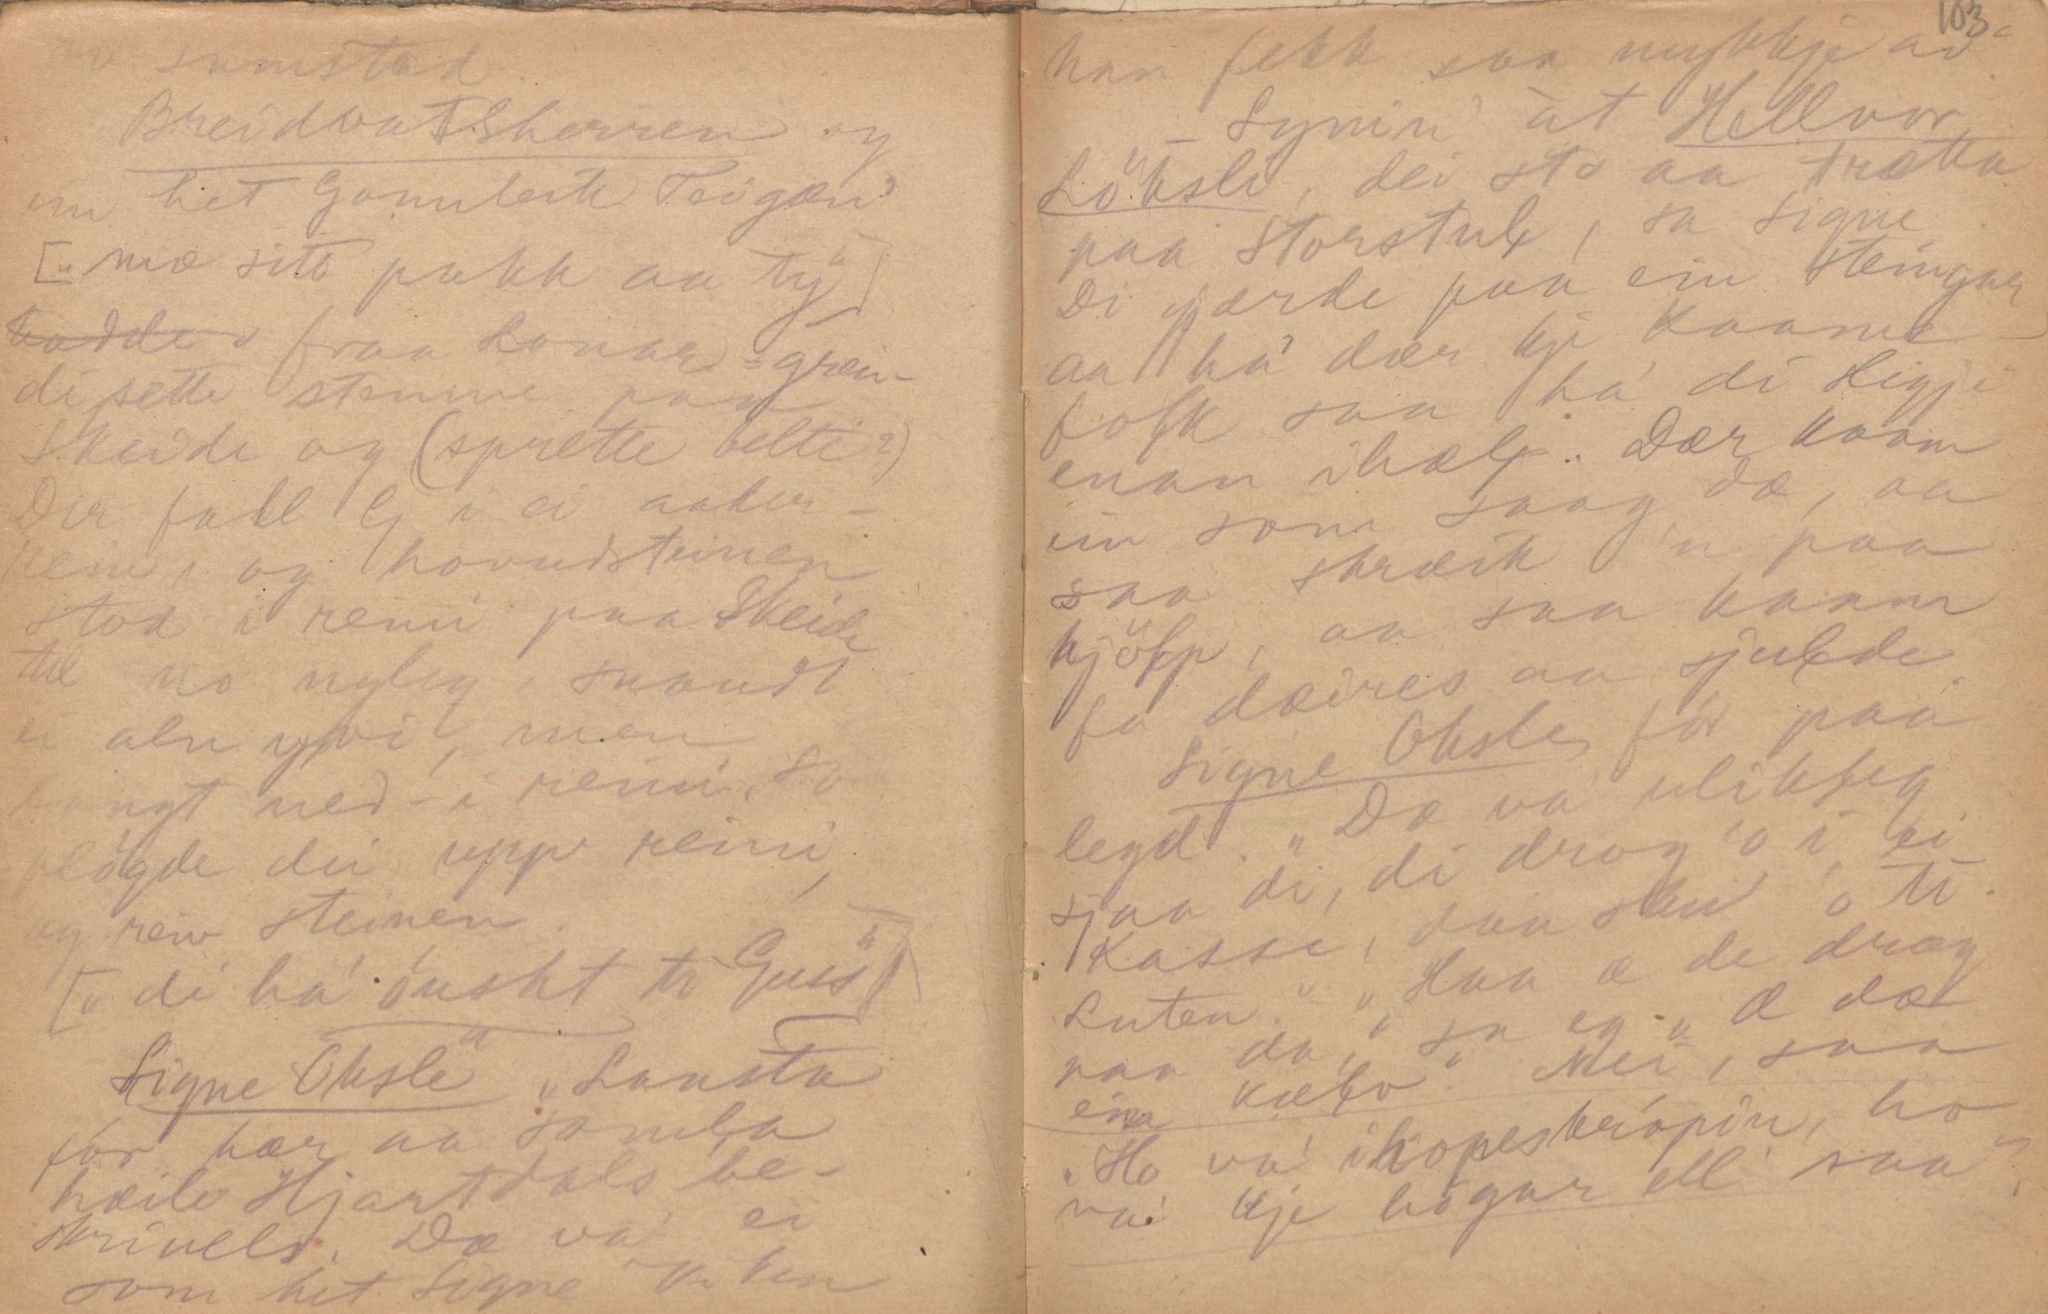 sumstad.
Breidvatskerren og
ein het Gamleik Teigæn
[„mæ sitt pakk aa ty"]
hadde fraa Lonar-gren-
di sette stemne paa
Skeide og (sprette belte?)
Der fall G i ei aaker-
rein, og hovudsteinen
stod i reini paa Skeide
til no nyleg, snaudt
ei aln yvi, men
langt ned-i reini, so
plögde dei upp reini,
og reiv steinen.
[„di ha' ónskt ti Guss"]
Signe Oksle" „Launsta
fór hær aa samla
heile Hjartdals be-
skrivels. Dæ va' ei
som het Signe
han fekk saa mykkje av.
Synin' åt Hellvor
Löksli, dei sto aa trætta
paa Storstul, sa Signe
Di gjærde paa ein steingar
aa ha' dær kje kaame
folk saa ha' di sligji
enan ihæl. Dær kaam
ein som saag dæ, aa
saa skreik 'n paa
hjölp, aa saa kaam
fa dæires aa sjulde.
Signe Oksle fór paa
legd. „Dæ va' ulikleg
sjaa di, di drog 'o i ei
Kasse, daa 'o ti
Luten." „Haa æ de drag
paa da," sa eg. „Æ dæ
ein kælv". „Nei", saa
„Ho va' ihopeskrópin, ho
va' kje högar ell' saa",
103